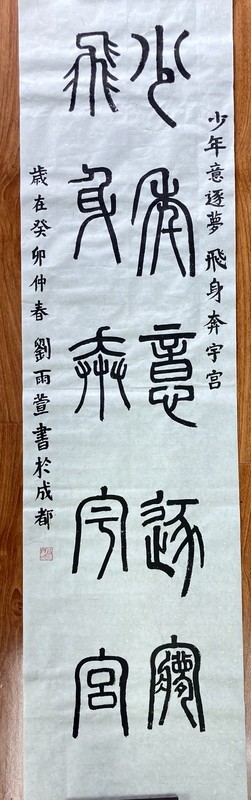 少年意逐夢 飛身奔宇宮
少年意逐夢
飛身奔宇宮
歲在癸卯仲春 劉雨萱書於成都